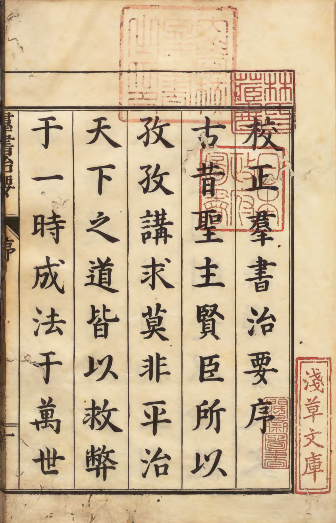 校正羣書治要序
古昔聖主賢臣所以
孜孜講求莫非平治
天下之道皆以救弊
于一時成法于萬世
羣書治要
序
一
淺草文庫